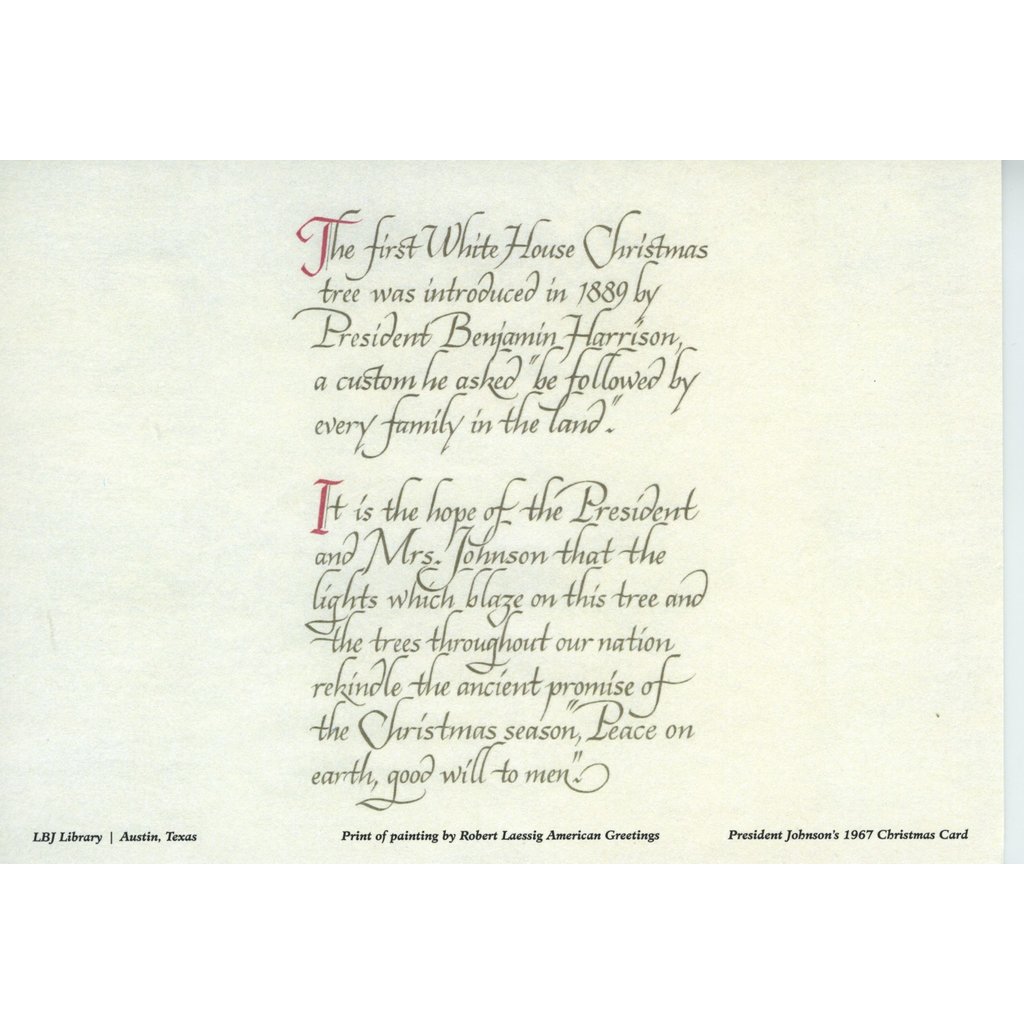 The first White House Christmas
tree was introduced in 1889 by
President Benjamin Harrison,
a custom he asked "be followed by
every family in the land".
It is the hope of the President
and Mrs. Johnson that the
lights which blaze on this tree and
the trees throughout our nation
rekindle the ancient promise of
the Christmas season, "Peace on
earth, good will to men".
LBJ Library | Austin, Texas
Print of painting by Robert Laessig American Greetings
President Johnson's 1967 Christmas Card